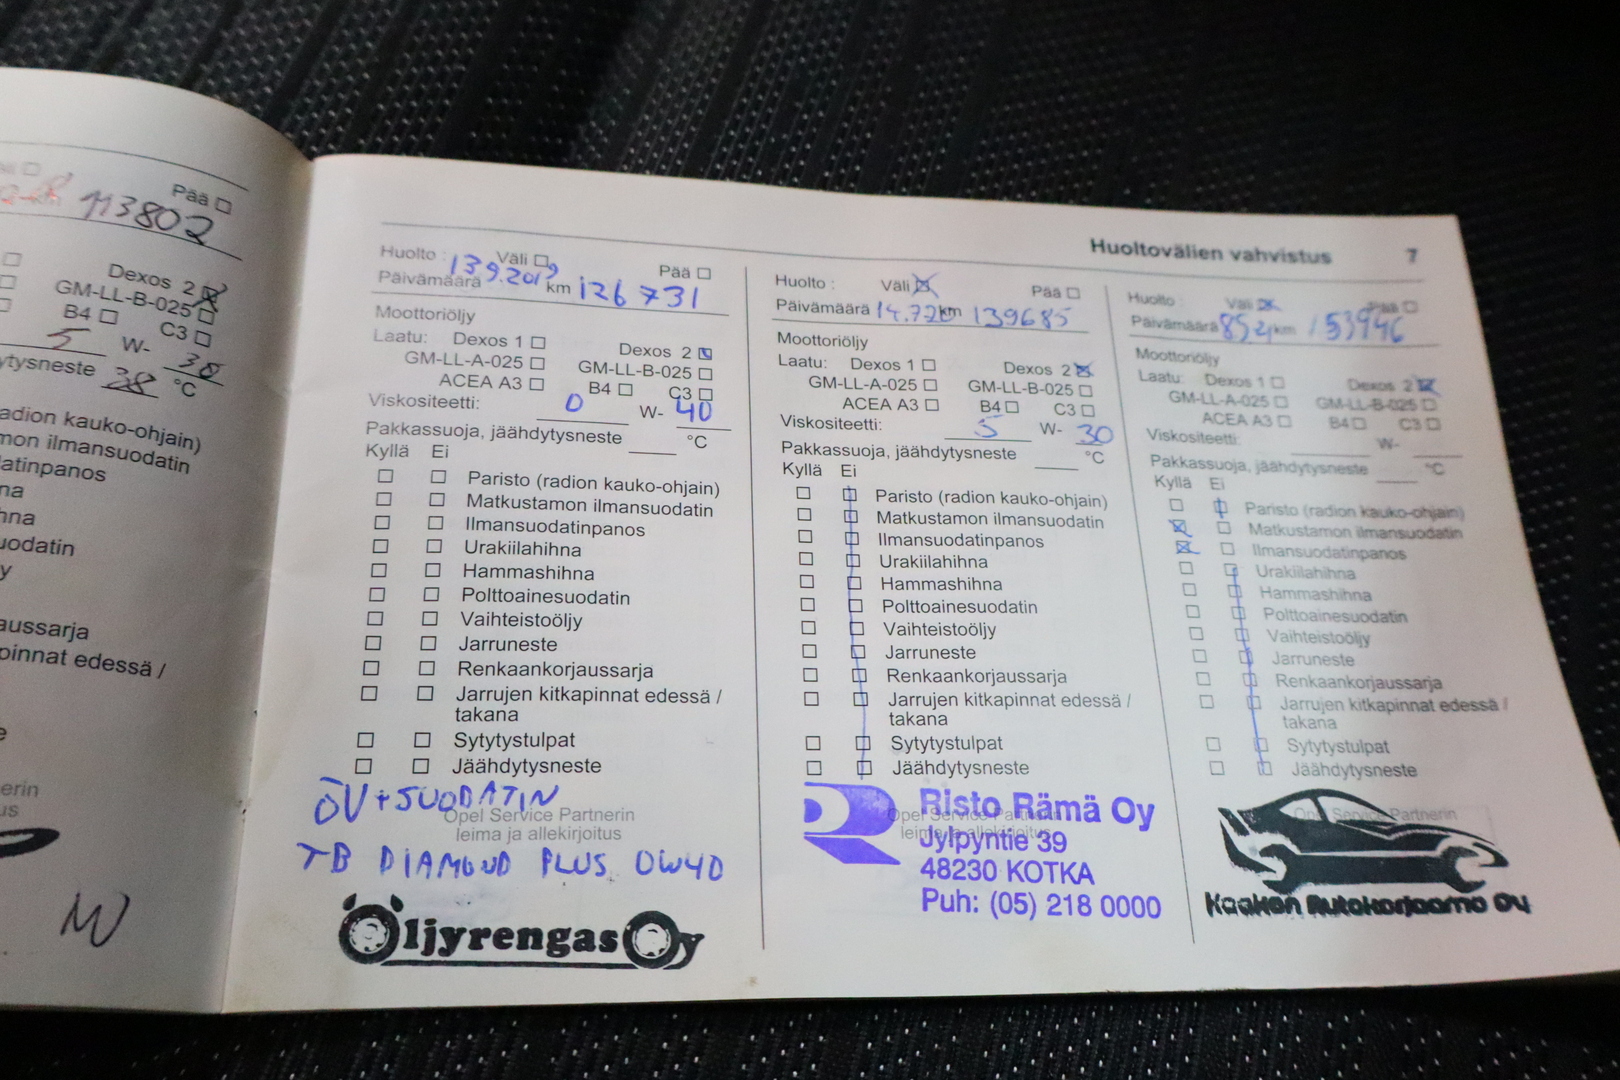 Pää
113802
Dexos 2
GM-LL-B-025
B4 C3
5 W- 30
°C
adion kauko-ohjain)
mon ilmansuodatin
atinpanos
na
hna
uodatin
y
aussarja
pinnat edessä /
e
erin
us
Huoltovälien vahvistus 7
Huolto : Väli Pää
Päivämäärä 13.9.2019 km 126 731
Moottoriöljy
Laatu: Dexos 1 Dexos 2
GM-LL-A-025 GM-LL-B-025
ACEA A3 B4 C3
Viskositeetti: 0 W- 40
Pakkassuoja, jäähdytysneste °C
Kyllä Ei
Paristo (radion kauko-ohjain)
Matkustamon ilmansuodatin
Ilmansuodatinpanos
Urakiilahihna
Hammashihna
Polttoainesuodatin
Vaihteistoöljy
Jarruneste
Renkaankorjaussarja
Jarrujen kitkapinnat edessä /
takana
Sytytystulpat
Jäähdytysneste
ÖV+SUODATIN
Opel Service Partnerin
leima ja allekirjoitus
TB DIAMOND PLUS 0W40
Öljyrengas Oy
Huolto : Väli Pää
Päivämäärä km 139685
Moottoriöljy
Laatu: Dexos 1 Dexos 2
GM-LL-A-025 GM-LL-B-025
ACEA A3 B4 C3
Viskositeetti: 5 W- 30
Pakkassuoja, jäähdytysneste °C
Kyllä Ei
Paristo (radion kauko-ohjain)
Matkustamon ilmansuodatin
Ilmansuodatinpanos
Urakiilahihna
Hammashihna
Polttoainesuodatin
Vaihteistoöljy
Jarruneste
Renkaankorjaussarja
Jarrujen kitkapinnat edessä /
takana
Sytytystulpat
Jäähdytysneste
Opel Service Partnerin
leima ja allekirjoitus
Risto Rämä Oy
Jylpyntie 39
48230 KOTKA
Puh: (05) 218 0000
Huolto : Väli Pää
Päivämäärä km 153946
Moottoriöljy
Laatu: Dexos 1 Dexos 2
GM-LL-A-025 GM-LL-B-025
ACEA A3 B4 C3
Viskositeetti: W-
Pakkassuoja, jäähdytysneste °C
Kyllä Ei
Paristo (radion kauko-ohjain)
Matkustamon ilmansuodatin
Ilmansuodatinpanos
Urakiilahihna
Hammashihna
Polttoainesuodatin
Vaihteistoöljy
Jarruneste
Renkaankorjaussarja
Jarrujen kitkapinnat edessä /
takana
Sytytystulpat
Jäähdytysneste
Opel Service Partnerin
Kaakon Autokorjaamo Oy